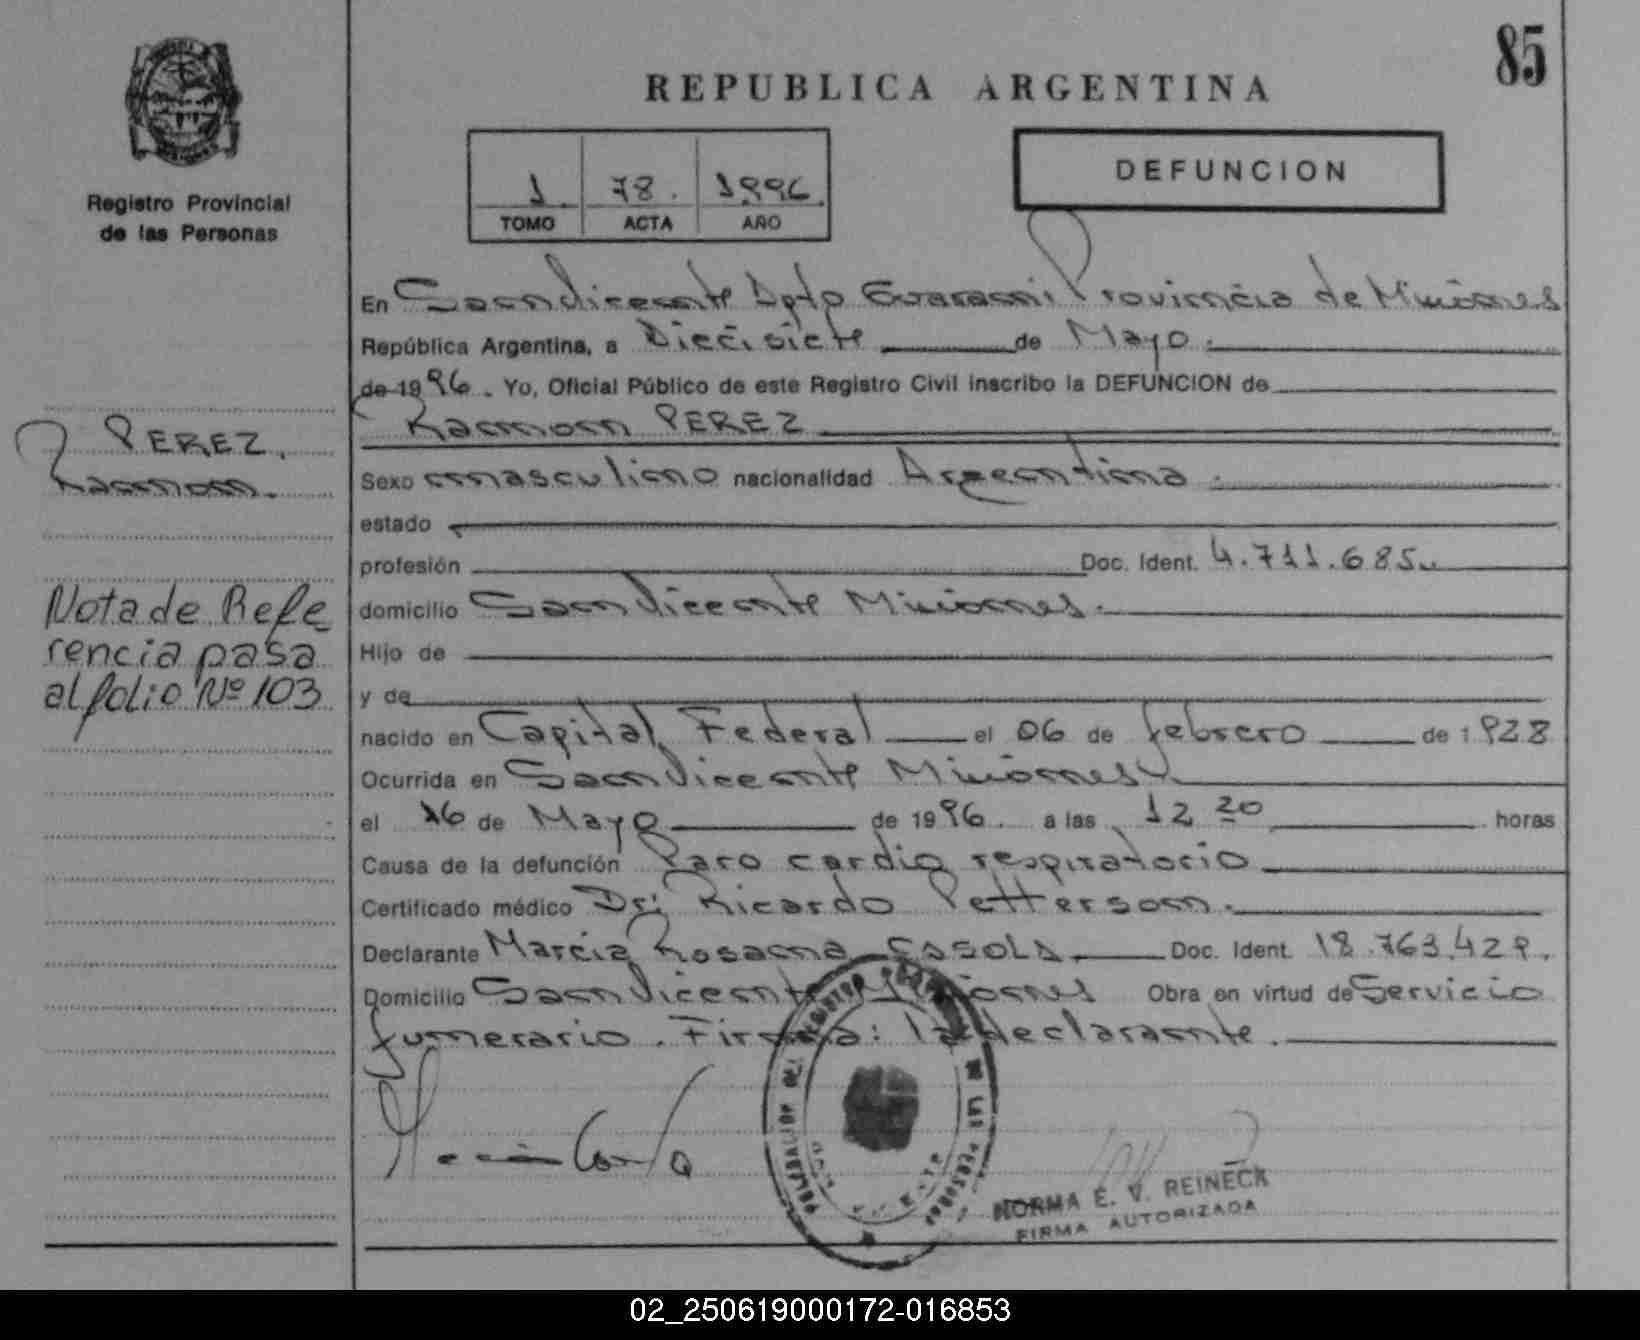 85
REPUBLICA ARGENTINA
Registro Provincial
de las Personas
1. 78. 1996.
TOMO ACTA AÑO
DEFUNCION
En San Vicente Dpto Guarani Provincia de Misiones
República Argentina, a Diecisiete de Mayo.
de 1996. Yo, Oficial Público de este Registro Civil inscribo la DEFUNCION de
Ramon PEREZ
PEREZ,
Ramon.
Sexo masculino nacionalidad Argentina.
estado
profesión Doc. Ident. 4.711.685.
domicilio San Vicente Misiones.
Nota de Refe_
rencia pasa
al folio Nº 103
Hijo de
y de
nacido en Capital Federal el 06 de febrero de 1928
Ocurrida en San Vicente Misiones
el 16 de Mayo de 1996. a las 12 20 horas
Causa de la defunción Paro cardio respiratorio
Certificado médico Dr: Ricardo Petterson.
Declarante Marcia Rosana Doc. Ident. 18.763.429.
Domicilio San Vicente Misiones Obra en virtud de Servicio
funerario. Firma: la declarante.
NORMA E. V. REINECK
FIRMA AUTORIZADA
02_250619000172-016853